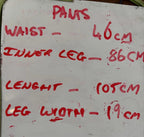 PANTS
WAIST – 46CM
INNER LEG – 86CM
LENGHT – 105CM
LEG WIDTH – 19CM